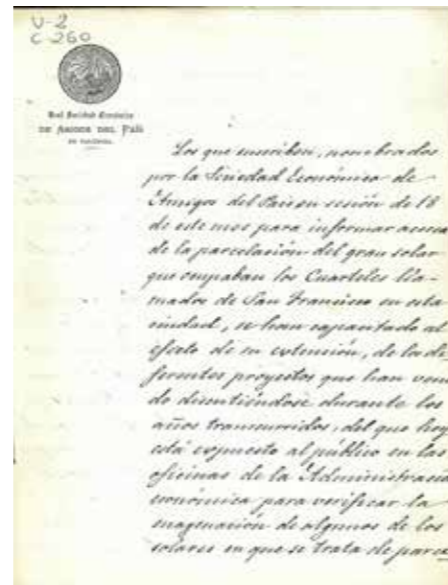 V-2
C-260
Real Sociedad Económica
DE AMIGOS DEL PAÍS
DE VALENCIA.
Los que suscriben, nombrados
por la Sociedad Económica de
Amigos del Pais en sesión de 18
de este mes para informar acerca
de la parcelación del gran solar
que ocupaban los Cuarteles lla-
mados de San Francisco en esta
ciudad, se han capacitado al
efecto de su extensión, de las di-
ferentes proyectos que han veni
do discutiéndose durante los
años transcurridos, del que hoy
está expuesto al público en las
oficinas de la Administración
económica para verificar la
enagenación de algunos de los
solares en que se trata de parce